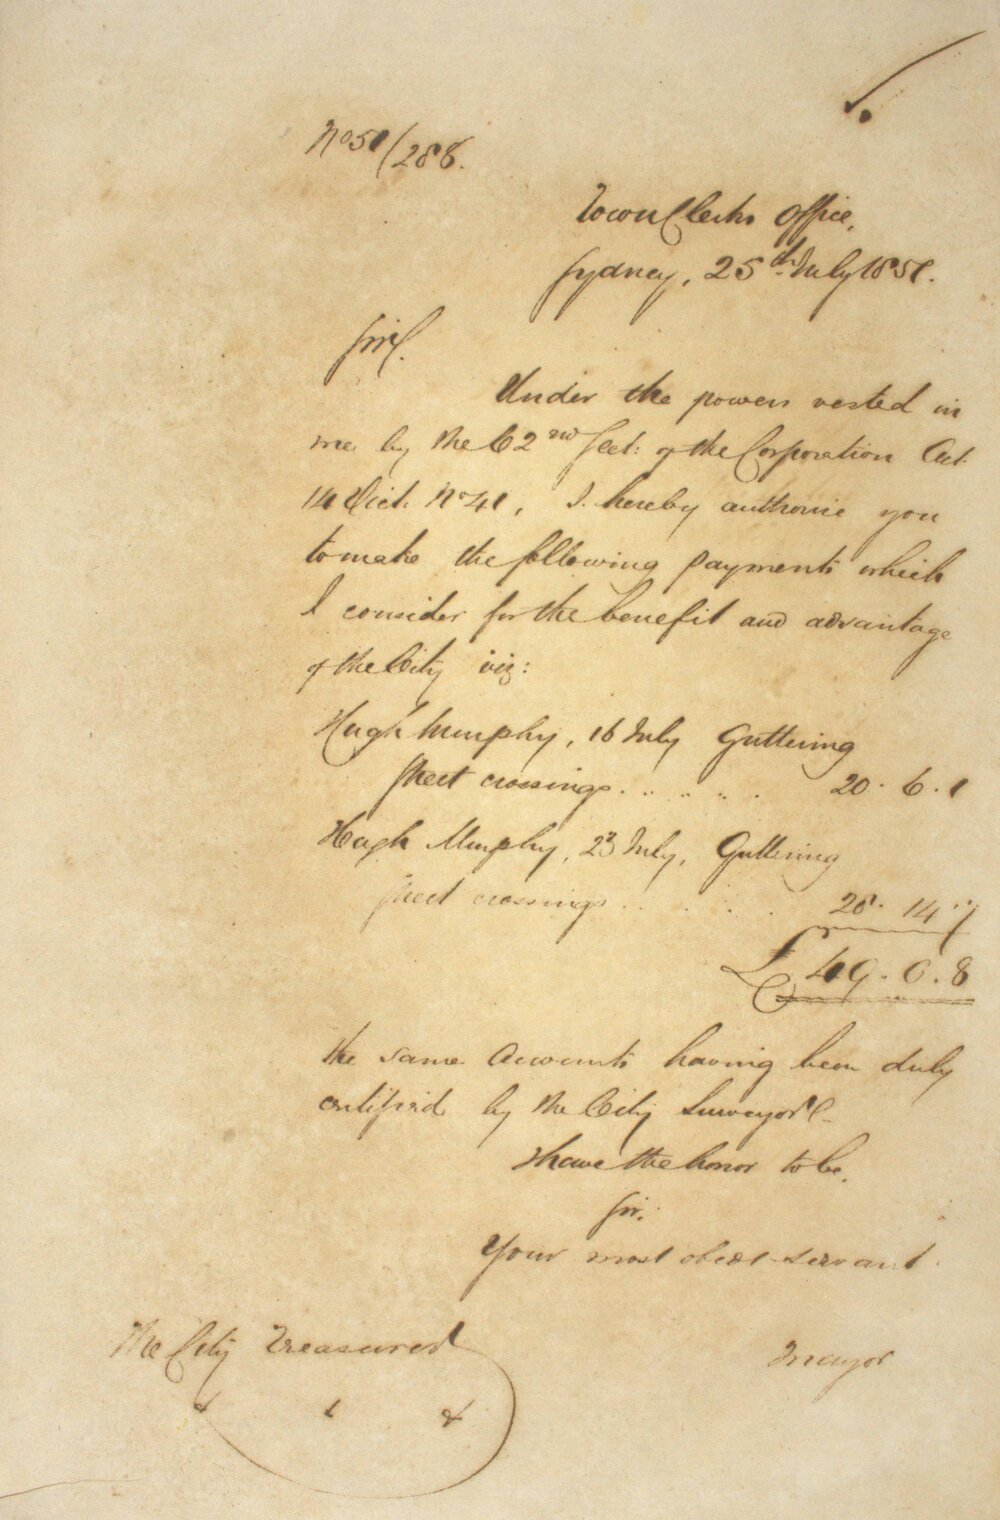 No 51/288.
Town Clerks Office,
Sydney, 25th July 1851.
Sir,
Under the powers vested in
me by the 62nd Sect: of the Corporation Act
14 Vict. No 41, I hereby authorise you
to make the following payments which
I consider for the benefit and advantage
of the City viz:
Hugh Murphy, 16 July Guttering
street crossings . . . . . 20. 6. 1
Hugh Murphy, 23 July, Guttering
street crossings . . . . 28. 14. 7
£ 49. 0. 8
the same Accounts having been duly
certified by the City Surveyor
I have the honor to be,
Sir,
Your most obedt servant
The City Treasurer
Mayor
& & &